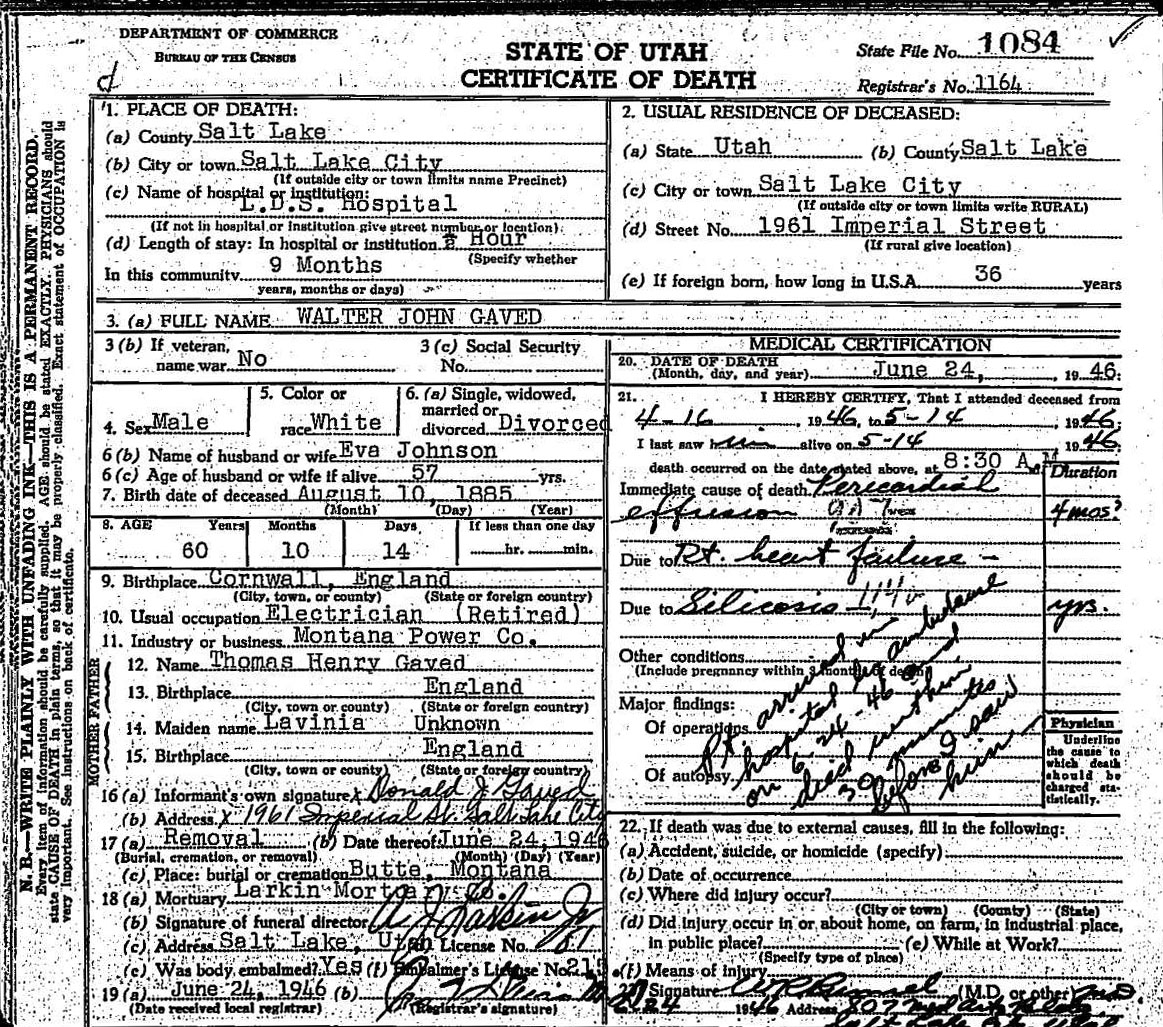 DEPARTMENT OF COMMERCE
BUREAU OF THE CENSUS
STATE OF UTAH
CERTIFICATE OF DEATH
State File No. 1084
Registrar's No. 1164
N. B.—WRITE PLAINLY WITH UNFADING INK—THIS IS A PERMANENT RECORD.
Every item of information should be carefully supplied. AGE should be stated EXACTLY. PHYSICIANS should
state CAUSE OF DEATH in plain terms, so that it may be properly classified. Exact statement of OCCUPATION is
very important. See instructions on back of certificate.
1. PLACE OF DEATH:
(a) County Salt Lake
(b) City or town Salt Lake City
(If outside city or town limits name Precinct)
(c) Name of hospital or institution:
L.D.S. Hospital
(If not in hospital or institution give street number or location)
(d) Length of stay: In hospital or institution ½ Hour
(Specify whether
In this community 9 Months
years, months or days)
2. USUAL RESIDENCE OF DECEASED:
(a) State Utah (b) County Salt Lake
(c) City or town Salt Lake City
(If outside city or town limits write RURAL)
(d) Street No. 1961 Imperial Street
(If rural give location)
(e) If foreign born, how long in U.S.A. 36 years
3. (a) FULL NAME WALTER JOHN GAVED
3 (b) If veteran, name war No
3 (c) Social Security No.
4. Sex Male
5. Color or race White
6. (a) Single, widowed, married or divorced Divorced
6 (b) Name of husband or wife Eva Johnson
6 (c) Age of husband or wife if alive 57 yrs.
7. Birth date of deceased August 10, 1885
(Month) (Day) (Year)
8. AGE Years Months Days If less than one day
60 10 14 hr. min.
9. Birthplace Cornwall, England
(City, town, or county) (State or foreign country)
10. Usual occupation Electrician (Retired)
11. Industry or business Montana Power Co.
FATHER
12. Name Thomas Henry Gaved
13. Birthplace England
(City, town or county) (State or foreign country)
MOTHER
14. Maiden name Lavinia Unknown
15. Birthplace England
(City, town or county) (State or foreign country)
16 (a) Informant's own signature x Donald J Gaved
(b) Address x 1961 Imperial St. Salt Lake City
17 (a) Removal (b) Date thereof June 24, 1946
(Burial, cremation, or removal) (Month) (Day) (Year)
(c) Place: burial or cremation Butte, Montana
18 (a) Mortuary Larkin Mortuary Co.
(b) Signature of funeral director A J Larkin Jr
(c) Address Salt Lake, Utah License No. 81
(e) Was body embalmed? Yes (f) Embalmer's License No. 215
19 (a) June 24, 1946 (b)
(Date received local registrar) (Registrar's signature)
MEDICAL CERTIFICATION
20. DATE OF DEATH
(Month, day, and year) June 24, 1946.
21. I HEREBY CERTIFY, That I attended deceased from
4-16 1946, to 5-14, 1946
I last saw him alive on 5-14 1946
death occurred on the date stated above, at 8:30 A.M
Duration
Immediate cause of death Pericardial
effusion 4 mos?
Due to Rt. heart failure -
Due to Silicosis 114 yrs.
Other conditions
(Include pregnancy within 3 months of death)
Major findings:
Of operations
Of autopsy
Pt. arrived in
hospital by ambulance
on 6-24-46 and
died within
30 minutes
before I saw
him -
Physician
Underline
the cause to
which death
should be
charged sta-
tistically.
22. If death was due to external causes, fill in the following:
(a) Accident, suicide, or homicide (specify)
(b) Date of occurrence
(c) Where did injury occur?
(City or town) (County) (State)
(d) Did injury occur in or about home, on farm, in industrial place,
in public place? (e) While at Work?
(Specify type of place)
(f) Means of injury
Signature (M.D. or other) M.D.
Address